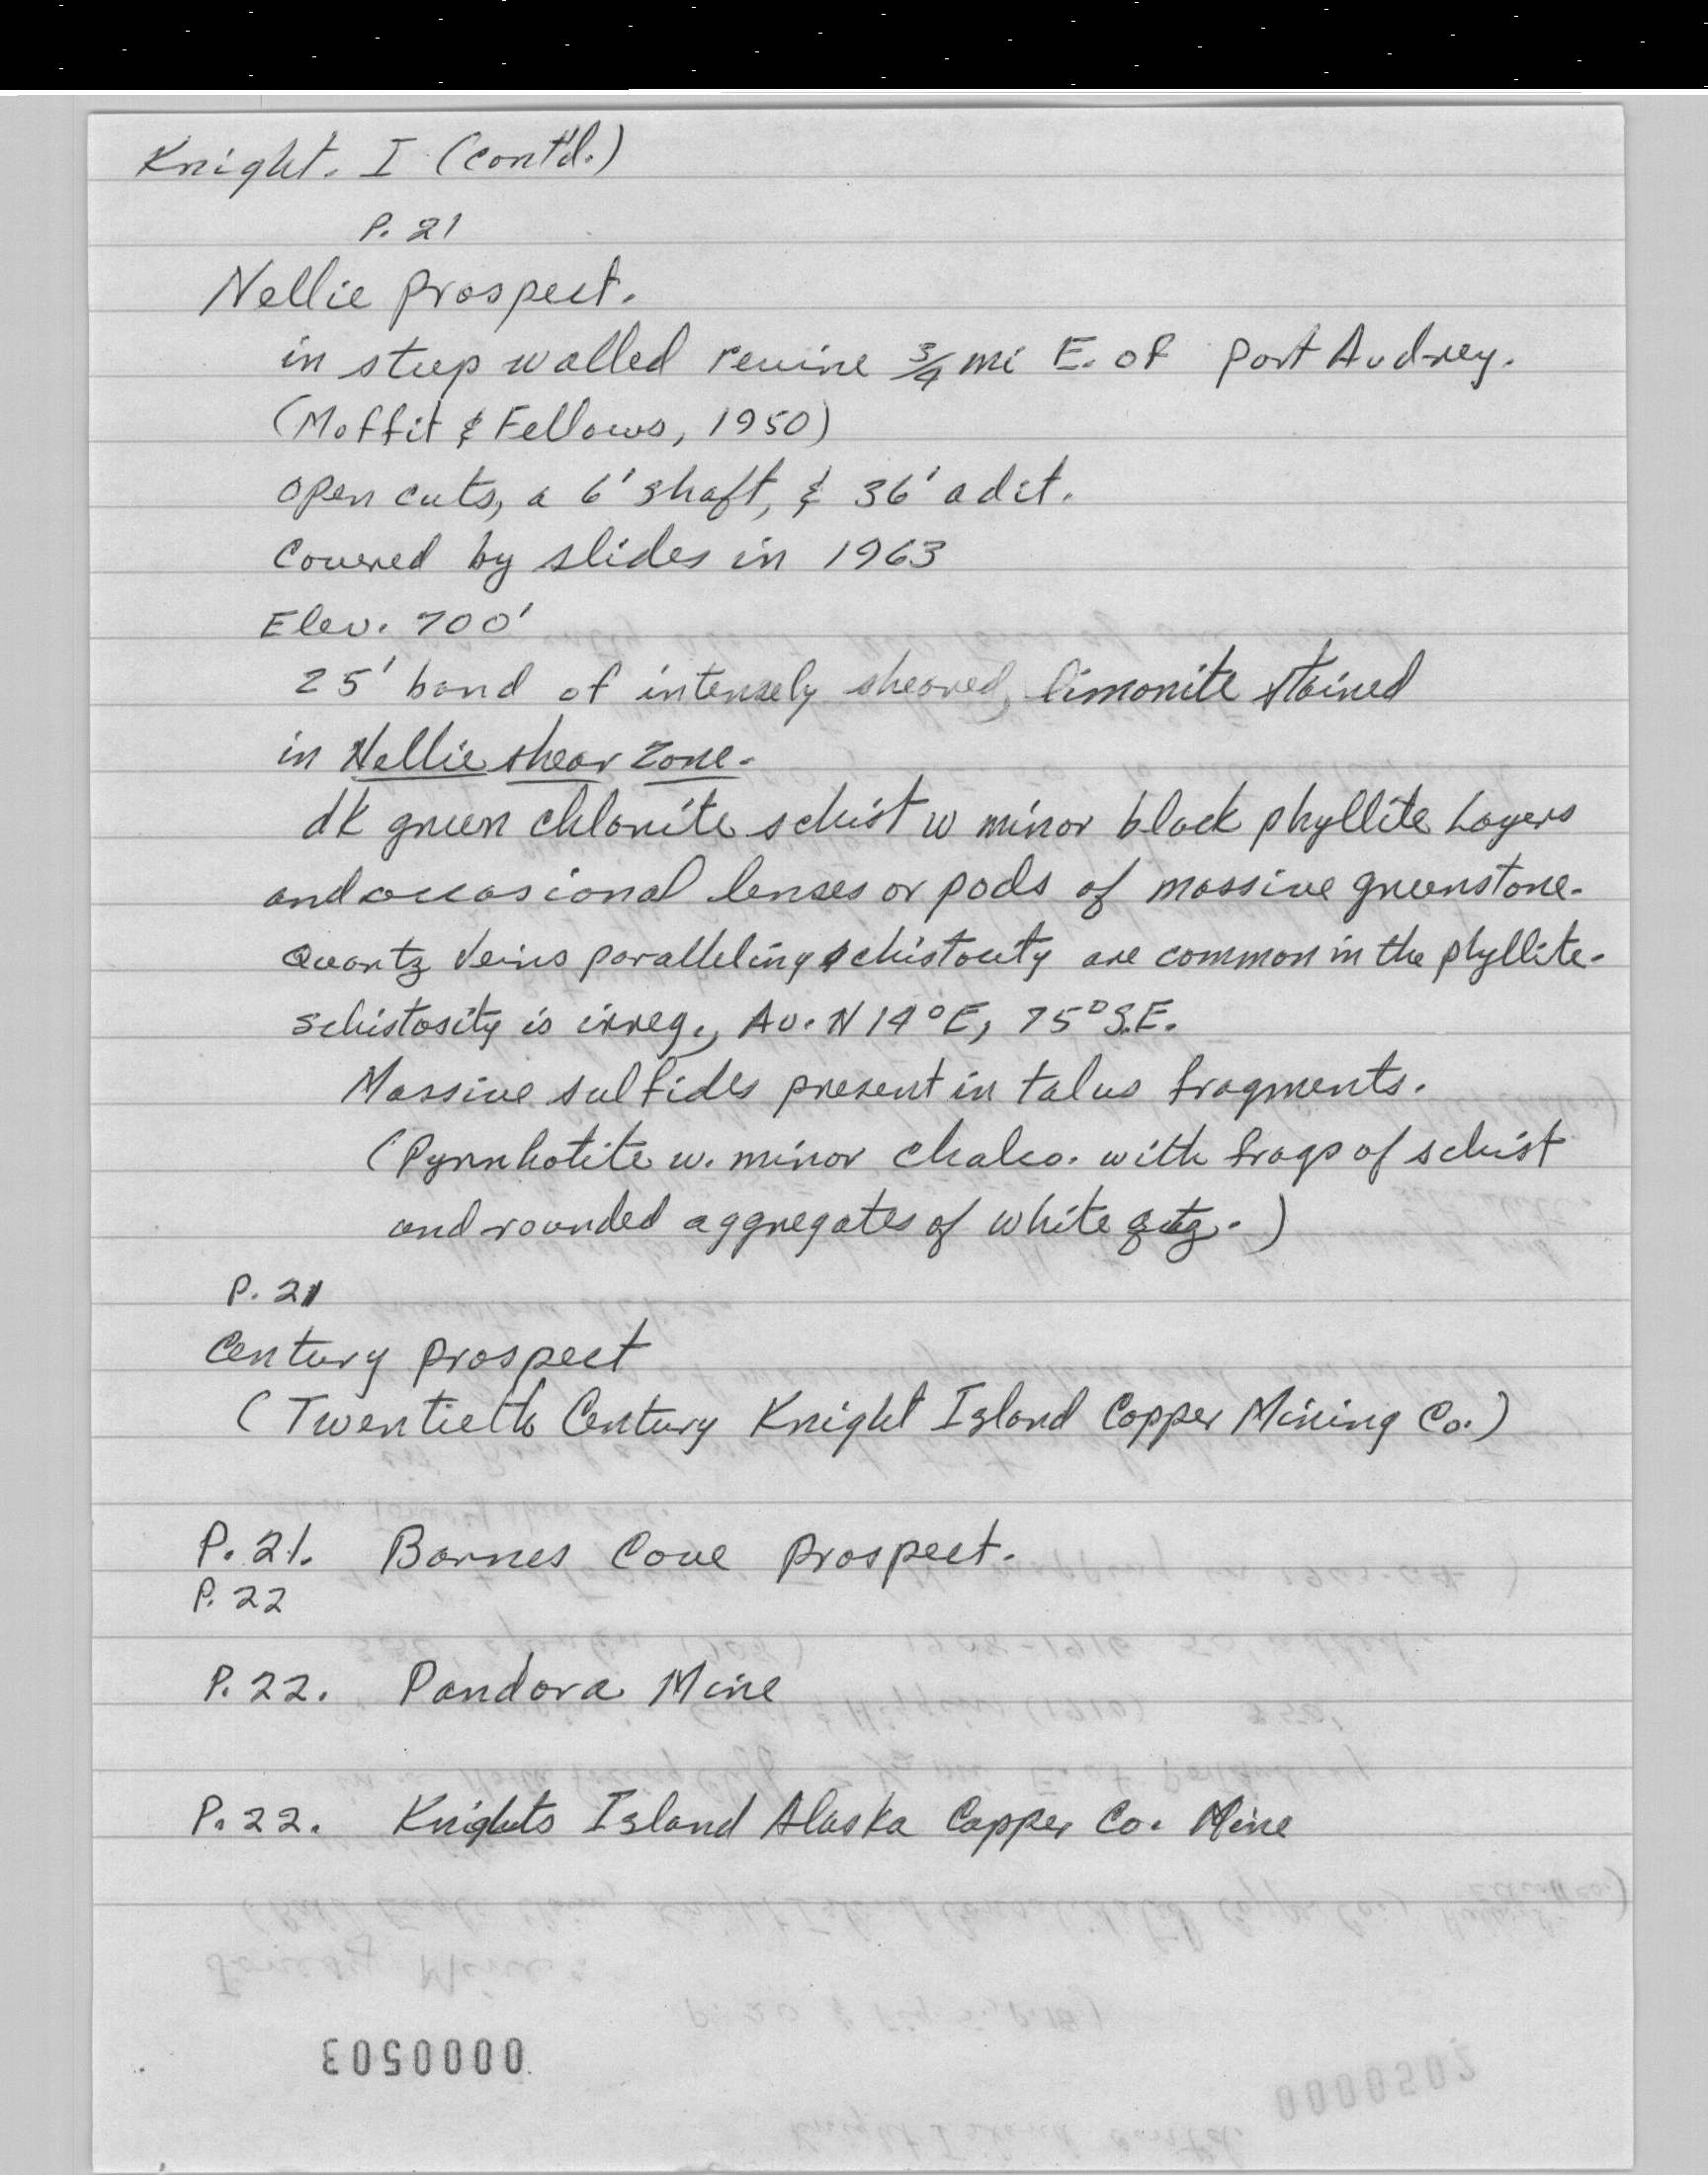 Knight. I (cont'd.)
P. 21
Nellie prospect.
in steep walled revine 3/4 mi E. of Port Audrey.
(Moffit & Fellows, 1950)
open cuts, a 6' shaft, & 36' adit.
Covered by slides in 1963
Elev. 700'
25' band of intensely sheared, limonite stained
in Nellie shear zone.
dk green chlorite schist w minor black phyllite layers
and occasional lenses or pods of massive greenstone.
Quartz veins paralleling schistocity are common in the phyllite.
schistosity is irreg., Av. N 14° E, 75° S.E.
Massive sulfides present in talus fragments.
(Pyrrhotite w. minor chalco. with frags of schist
and rounded aggregates of white qtz.)
P. 21
Century prospect
(Twentieth Century Knight Island Copper Mining Co.)
P. 21. Barnes Cove prospect.
P. 22
P. 22. Pandora Mine
P. 22. Knights Island Alaska Copper Co. Mine
0000503
0000502